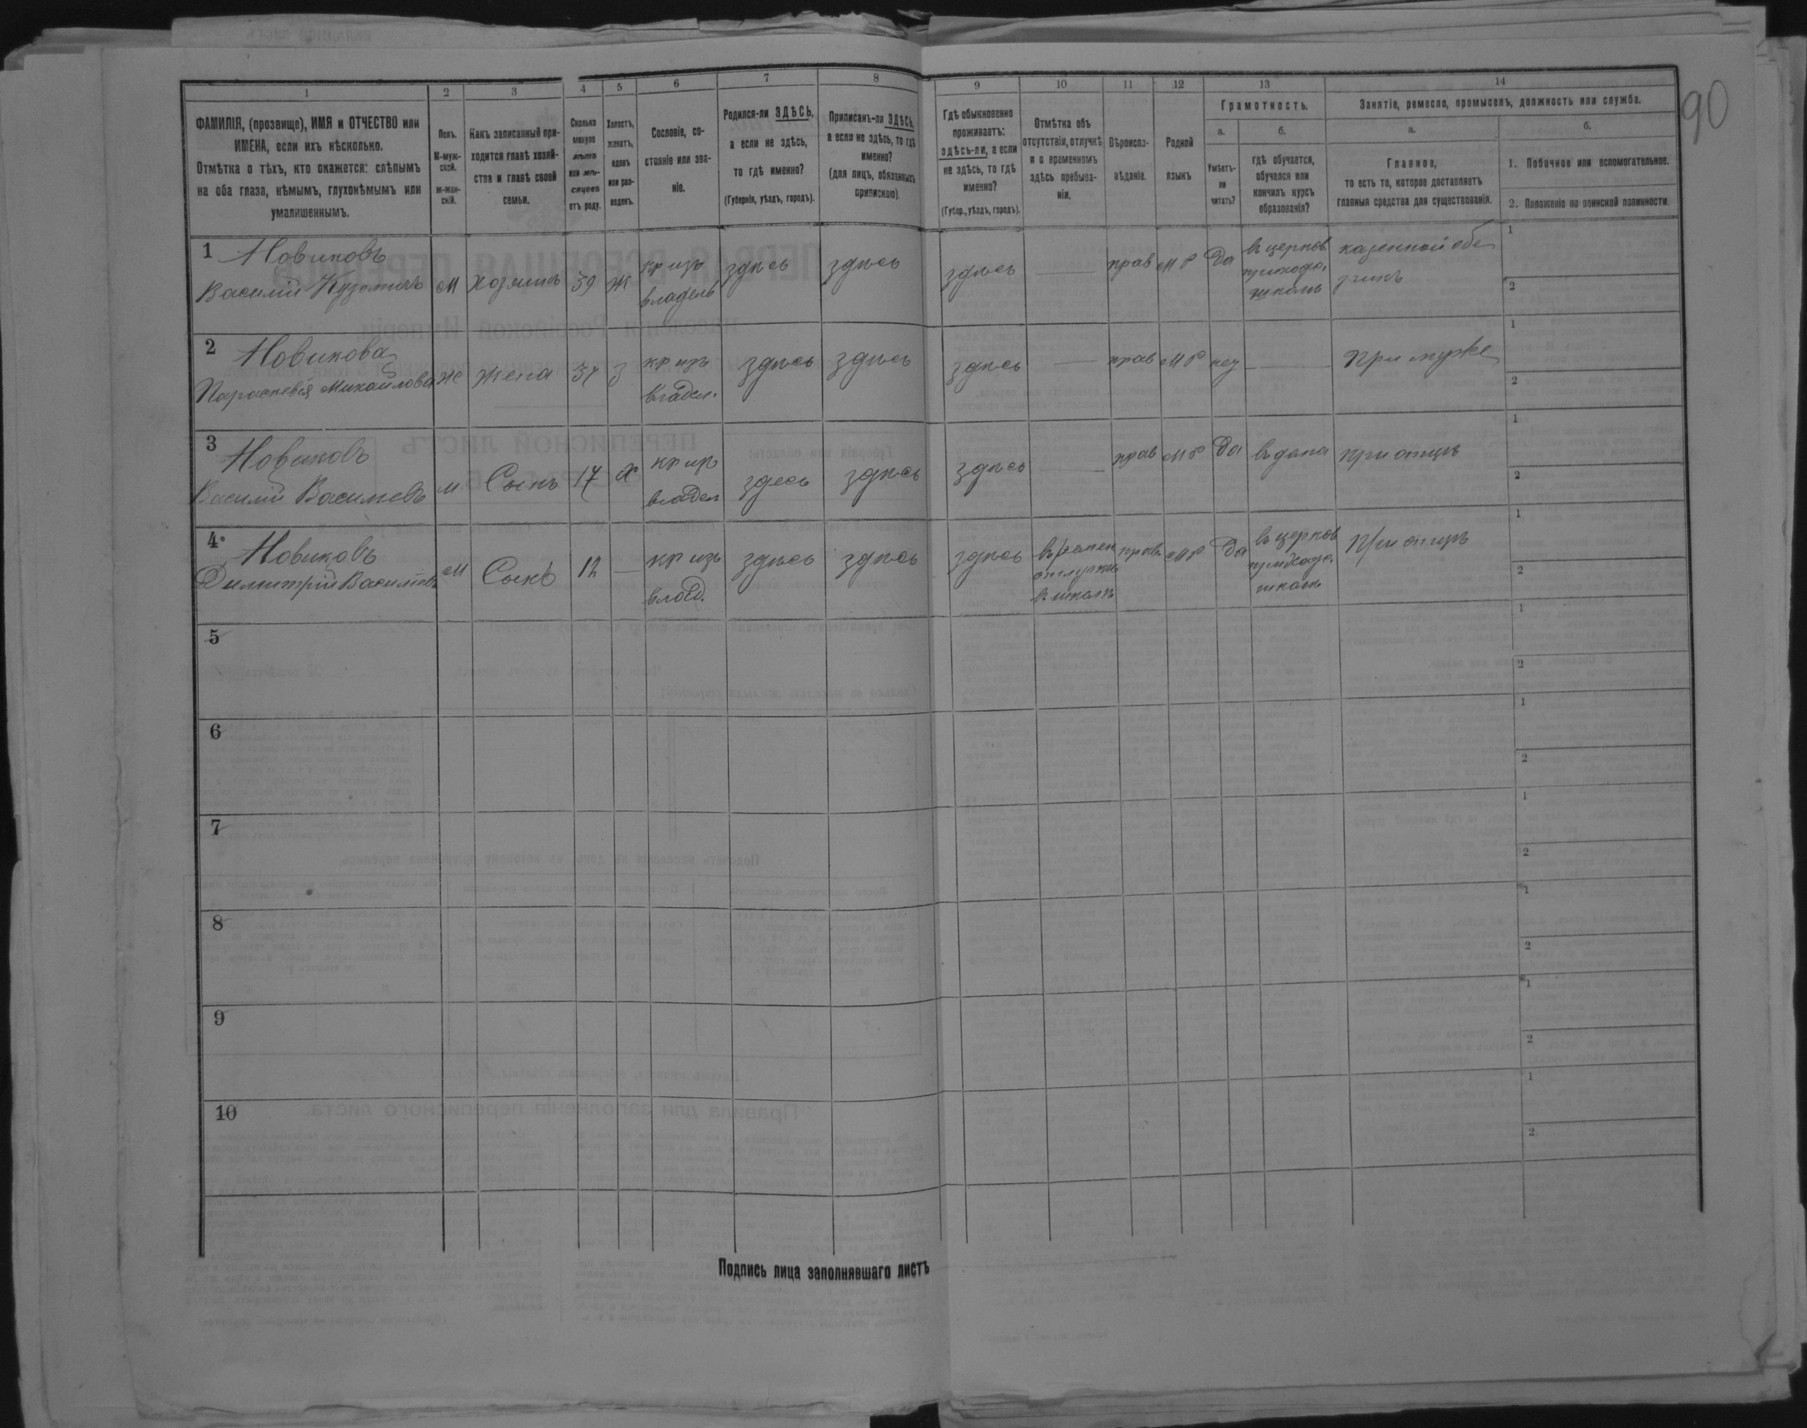 90
1 2 3 4 5 6 7 8 9 10 11 12 13 14
ФАМИЛІЯ, (прозвище), ИМЯ и ОТЧЕСТВО или
ИМЕНА, если ихъ нѣсколько.
Отмѣтка о тѣхъ, кто окажется: слѣпымъ
на оба глаза, нѣмымъ, глухонѣмымъ или
умалишеннымъ.
Полъ.
М-муж-
ской.
Ж-жен-
скій.
Какъ записанный при-
ходится главѣ хозяй-
ства и главѣ своей
семьи.
Сколько
минуло
лѣтъ
или мѣ-
сяцевъ
отъ роду.
Холостъ,
женатъ,
вдовъ
или раз-
веденъ.
Сословіе, со-
стояніе или зва-
ніе.
Родился-ли ЗДѢСЬ,
а если не здѣсь,
то гдѣ именно?
(Губернія, уѣздъ, городъ).
Приписанъ-ли ЗДѢСЬ,
а если не здѣсь, то гдѣ
именно?
(для лицъ, обязанныхъ
припискою)
Гдѣ обыкновенно
проживаетъ:
здѣсь-ли, а если
не здѣсь, то гдѣ
именно?
(Губер., уѣздъ, городъ).
Отмѣтка объ
отсутствіи, отлучкѣ
и о временномъ
здѣсь пребыва-
ніи.
Вѣроиспо-
вѣданіе.
Родной
языкъ
Грамотность.
а.
Умѣетъ-
ли
читать?
б.
гдѣ обучается,
обучался или
кончилъ курсъ
образованія?
Занятіе, ремесло, промыселъ, должность или служба.
а.
Главное,
то есть то, которое доставляетъ
главныя средства для существованія.
б.
1. Побочное или вспомогательное.
2. Положеніе по воинской повинности.
1 Новиковъ
Василій Кузьмичъ м хозяинъ 39 ж кр изъ
владель здѣсь здѣсь здѣсь — прав М Р Да въ церков
приход.
школѣ 1
2
2 Новикова
Параскевія Михайлова же жена 37 З кр изъ
владел. здѣсь здѣсь здѣсь — прав М Р нет — При муже 1
2
3 Новиковъ
Василій Васильевъ м Сынъ 17 х кр изъ
владел здесь здѣсь здѣсь — прав М Р Да при отцѣ 1
2
4 Новиковъ
Димитрій Васильевъ м Сынъ 12 — кр изъ
влад. здѣсь здѣсь здѣсь времен
отлучкѣ
в школѣ прав М Р Да в церков
приход.
школѣ При отцѣ 1
2
5 1
2
6 1
2
7 1
2
8 1
2
9 1
2
10 1
2
Подпись лица заполнявшаго листъ